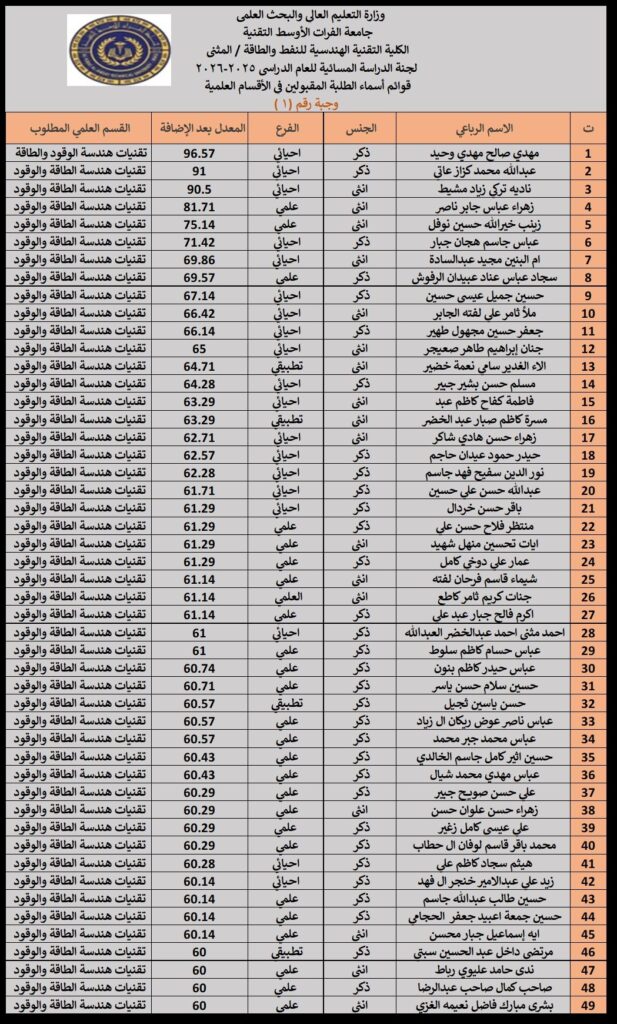 وزارة التعليم العالي والبحث العلمي
جامعة الفرات الأوسط التقنية
الكلية التقنية الهندسية للنفط والطاقة / المثنى
لجنة الدراسة المسائية للعام الدراسي ٢٠٢٥-٢٠٢٦
قوائم أسماء الطلبة المقبولين في الأقسام العلمية
وجبة رقم (١)
ت الاسم الرباعي الجنس الفرع المعدل بعد الإضافة القسم العلمي المطلوب
1 مهدي صالح مهدي وحيد ذكر احيائي 96.57 تقنيات هندسة الوقود والطاقة
2 عبدالله محمد كزاز عاتي ذكر احيائي 91 تقنيات هندسة الطاقة والوقود
3 ناديه تركي زياد مشيط انثى احيائي 90.5 تقنيات هندسة الطاقة والوقود
4 زهراء عباس جابر ناصر انثى علمي 81.71 تقنيات هندسة الطاقة والوقود
5 زينب خيرالله حسين نوفل انثى علمي 75.14 تقنيات هندسة الطاقة والوقود
6 عباس جاسم هجان جبار ذكر احيائي 71.42 تقنيات هندسة الطاقة والوقود
7 ام البنين مجيد عبدالسادة انثى احيائي 69.86 تقنيات هندسة الطاقة والوقود
8 سجاد عباس عناد عبيدان الرفوش ذكر علمي 69.57 تقنيات هندسة الطاقة والوقود
9 حسين جميل عيسى حسين ذكر احيائي 67.14 تقنيات هندسة الطاقة والوقود
10 ملأ ثامر علي لفته الجابر انثى احيائي 66.42 تقنيات هندسة الطاقة والوقود
11 جعفر حسين مجهول طهير ذكر احيائي 66.14 تقنيات هندسة الطاقة والوقود
12 جنان إبراهيم طاهر صعيجر انثى احيائي 65 تقنيات هندسة الطاقة والوقود
13 الاء الغدير سامي نعمة خضير انثى تطبيقي 64.71 تقنيات هندسة الطاقة والوقود
14 مسلم حسن بشير جبير ذكر احيائي 64.28 تقنيات هندسة الطاقة والوقود
15 فاطمة كفاح كاظم عبد انثى احيائي 63.29 تقنيات هندسة الطاقة والوقود
16 مسرة كاظم صبار عبد الخضر انثى تطبيقي 63.29 تقنيات هندسة الطاقة والوقود
17 زهراء حسن هادي شاكر انثى احيائي 62.71 تقنيات هندسة الطاقة والوقود
18 حيدر حمود عيدان حاجم ذكر احيائي 62.57 تقنيات هندسة الطاقة والوقود
19 نور الدين سفيح فهد جاسم ذكر احيائي 62.28 تقنيات هندسة الطاقة والوقود
20 عبدالله حسن علي حسين ذكر احيائي 61.71 تقنيات هندسة الطاقة والوقود
21 باقر حسن خردال ذكر احيائي 61.29 تقنيات هندسة الطاقة والوقود
22 منتظر فلاح حسن علي ذكر علمي 61.29 تقنيات هندسة الطاقة والوقود
23 ايات تحسين منهل شهيد انثى علمي 61.29 تقنيات هندسة الطاقة والوقود
24 عمار علي دوخي كامل ذكر علمي 61.29 تقنيات هندسة الطاقة والوقود
25 شيماء قاسم فرحان لفته انثى علمي 61.14 تقنيات هندسة الطاقة والوقود
26 جنات كريم ثامر كاطع انثى العلمي 61.14 تقنيات هندسة الطاقة والوقود
27 اكرم فالح جبار عبد علي ذكر علمي 61.14 تقنيات هندسة الطاقة والوقود
28 احمد مثنى احمد عبدالخضر العبدالله ذكر احيائي 61 تقنيات هندسة الطاقة والوقود
29 عباس حسام كاظم سلوط ذكر علمي 61 تقنيات هندسة الطاقة والوقود
30 عباس حيدر كاظم بنون ذكر علمي 60.74 تقنيات هندسة الطاقة والوقود
31 حسين سلام حسن ياسر ذكر علمي 60.71 تقنيات هندسة الطاقة والوقود
32 حسن ياسين ثجيل ذكر تطبيقي 60.57 تقنيات هندسة الطاقة والوقود
33 عباس ناصر عوض ريكان ال زياد ذكر علمي 60.57 تقنيات هندسة الطاقة والوقود
34 عباس محمد جبر محمد ذكر علمي 60.57 تقنيات هندسة الطاقة والوقود
35 حسين اثير كامل جاسم الخالدي ذكر علمي 60.43 تقنيات هندسة الطاقة والوقود
36 عباس مهدي محمد شيال ذكر علمي 60.43 تقنيات هندسة الطاقة والوقود
37 علي حسن صويح جبير ذكر علمي 60.29 تقنيات هندسة الطاقة والوقود
38 زهراء حسن علوان حسن انثى علمي 60.29 تقنيات هندسة الطاقة والوقود
39 علي عيسى كامل زغير ذكر علمي 60.29 تقنيات هندسة الطاقة والوقود
40 محمد باقر قاسم لوفان ال حطاب ذكر علمي 60.29 تقنيات هندسة الطاقة والوقود
41 هيثم سجاد كاظم علي ذكر احيائي 60.28 تقنيات هندسة الطاقة والوقود
42 زيد علي عبدالامير خنجر ال فهد ذكر احيائي 60.14 تقنيات هندسة الطاقة والوقود
43 حسين طالب عبدالله جاسم ذكر علمي 60.14 تقنيات هندسة الطاقة والوقود
44 حسين جمعة اعبيد جعفر الحجامي ذكر علمي 60.14 تقنيات هندسة الطاقة والوقود
45 ايه إسماعيل جبار محسن انثى علمي 60.14 تقنيات هندسة الطاقة والوقود
46 مرتضى داخل عبد الحسين سبتي ذكر تطبيقي 60 تقنيات هندسة الطاقة والوقود
47 ندى حامد عليوي رباط انثى علمي 60 تقنيات هندسة الطاقة والوقود
48 صاحب كمال صاحب عبدالرضا ذكر علمي 60 تقنيات هندسة الطاقة والوقود
49 بشرى مبارك فاضل نعيمه الغزي انثى علمي 60 تقنيات هندسة الطاقة والوقود